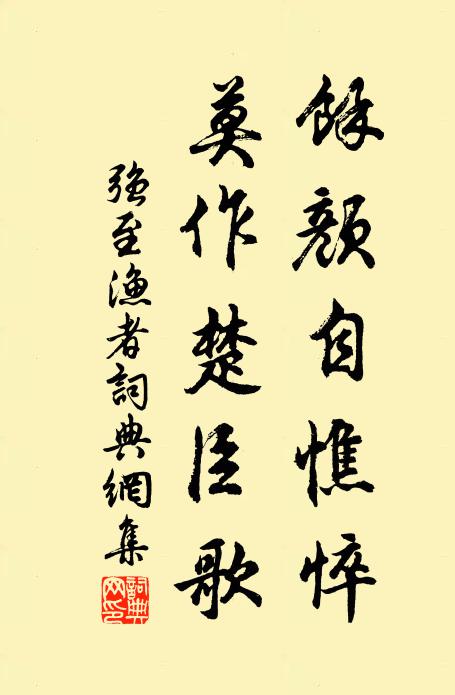 餘顏自憔悴
莫作楚臣歌
強至漁者詞典網集
詞典網印